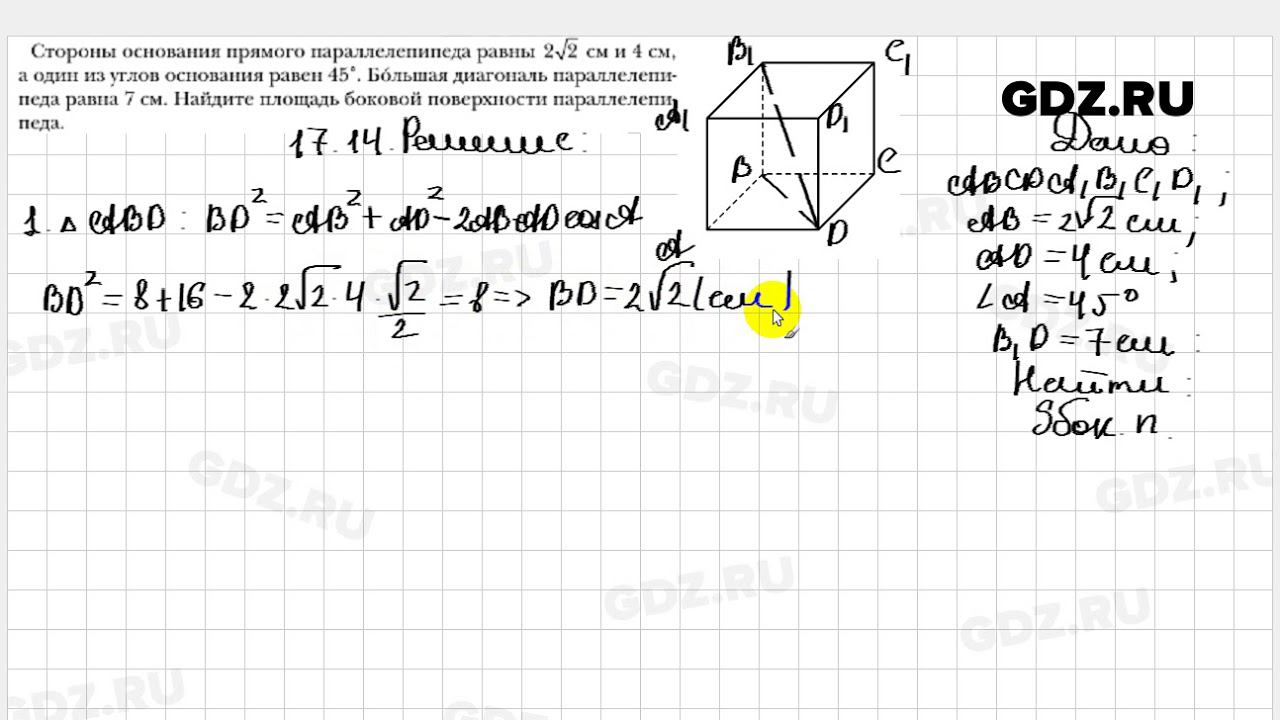 Стороны основания прямого параллелепипеда равны 2√2 см и 4 см,
а один из углов основания равен 45°. Бо́льшая диагональ параллелепи-
педа равна 7 см. Найдите площадь боковой поверхности параллелепи-
педа.
17.14. Решение:
B₁
C₁
A₁
D₁
B
C
A
D
GDZ.RU
Дано:
ABCDA₁B₁C₁D₁;
AB = 2√2 см;
AD = 4 см;
∠A = 45°
B₁D = 7 см:
Найти:
Sбок. п.
1. △ ABD : BD² = AB² + AD² - 2AB·AD cos A
BD² = 8 + 16 - 2 · 2√2 · 4 · √2/2 = 8 => BD = 2√2 (см)
GDZ.RU
GDZ.RU
GDZ.RU
GDZ.RU
GDZ.RU
GDZ.RU
GDZ.RU
GDZ.RU
GDZ.RU
GDZ.RU